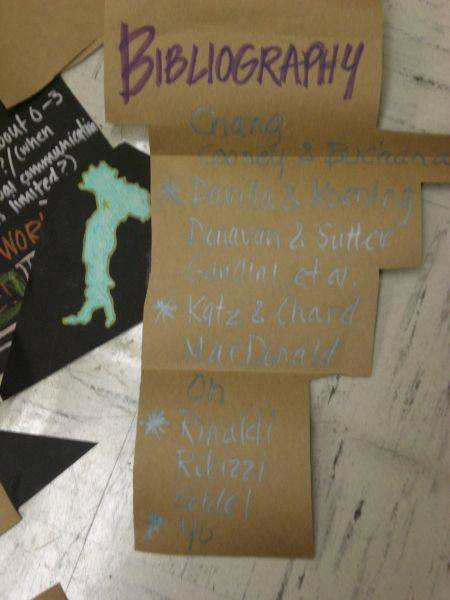 BIBLIOGRAPHY
Chang
Cooney & Buchana
* Davilla & Koening
Donavan & Sutter
Gandini, et al.
* Katz & Chard
MacDonald
Oh
* Rinaldi
Ribizzi
Seidel
* Yu
bout 0-3
?/(when
al communication
s limited?)
WOR